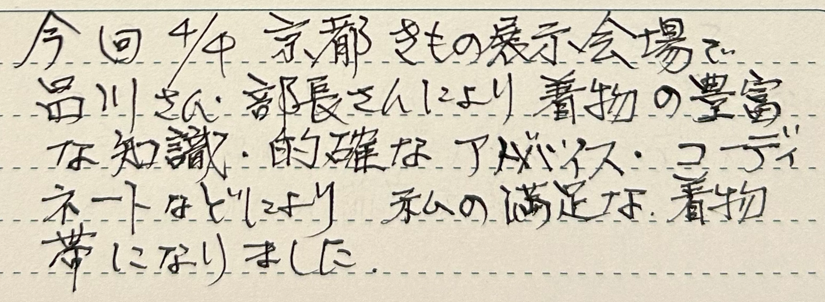 今回4/4 京都きもの展示会場で
品川さん・部長さんにより着物の豊富
な知識・的確なアドバイス・コーディ
ネートなどにより 私の満足な着物
帯になりました.